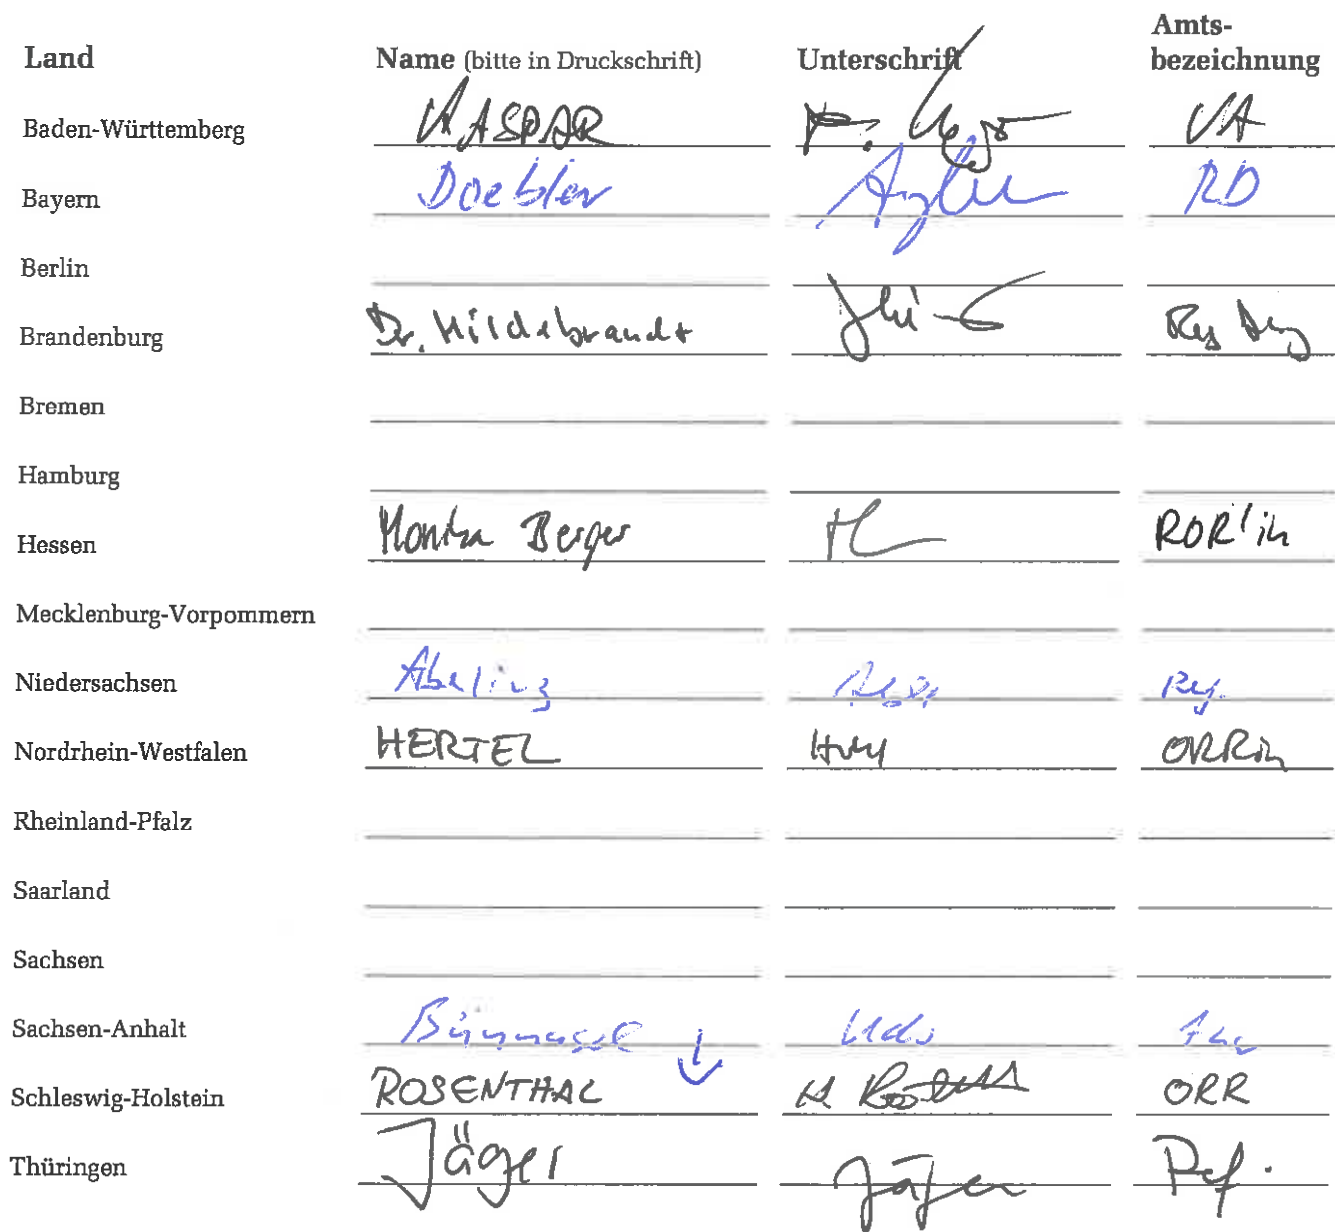 Land Name (bitte in Druckschrift) Unterschrift Amts-
bezeichnung
Baden-Württemberg KASPAR VA
Bayern Doebler RD
Berlin
Brandenburg Dr. Hildebrandt
Bremen
Hamburg
Hessen Monika Berger ROR'in
Mecklenburg-Vorpommern
Niedersachsen Abeling Ref.
Nordrhein-Westfalen HERTEL ORRin
Rheinland-Pfalz
Saarland
Sachsen
Sachsen-Anhalt
Schleswig-Holstein ROSENTHAL ORR
Thüringen Jäger Jäger Ref.